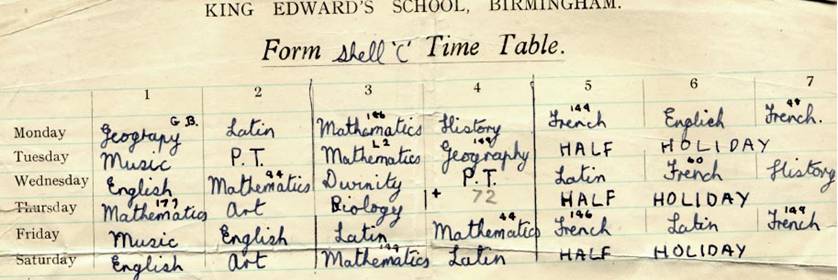 KING EDWARD'S SCHOOL, BIRMINGHAM.
Form Shell 'C' Time Table.
1 2 3 4 5 6 7
Monday Geograpy G B. Latin Mathematics 146 History French 144 English French.
Tuesday Music P.T. Mathematics L2 Geography 149 HALF HOLIDAY
Wednesday English Mathematics 94 Divinity P.T. Latin French 60 History
Thursday Mathematics 177 Art Biology 1+ 72 HALF HOLIDAY
Friday Music English Latin Mathematics 44 French 146 Latin French 149
Saturday English Art Mathematics 149 Latin HALF HOLIDAY